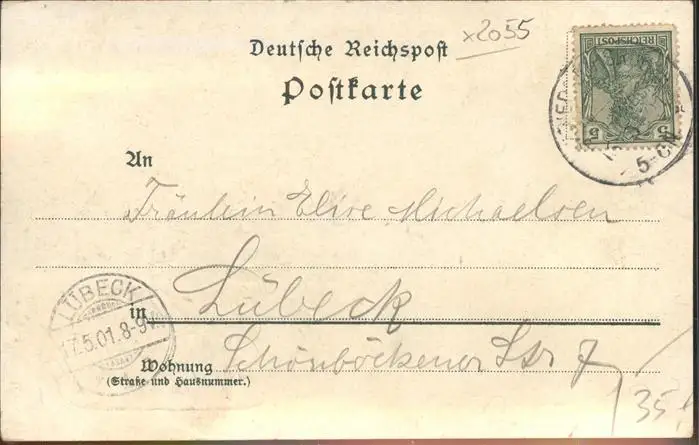 x2055
Deutsche Reichspost
Postkarte
REICHSPOST
5 5
5-6N
An
Fräulein Elise Michaelsen
LÜBECK
7.5.01.8-9V.
in Lübeck
Wohnung Schönböckener Str 7
(Straße und Hausnummer.)
35,